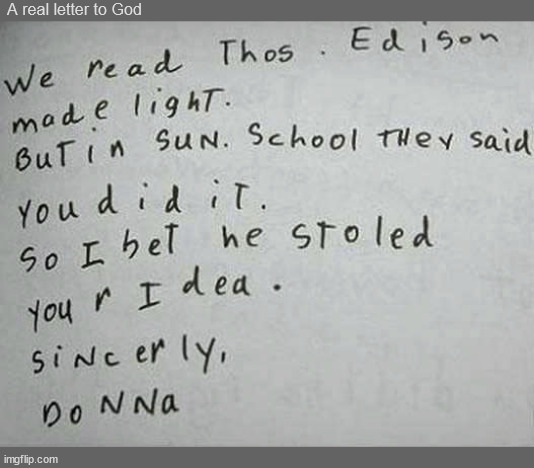 A real letter to God
We read Thos. Edison
made light.
But in SUN. School THey said
you did iT.
So I beT he sToled
your Idea.
SiNcerly,
DoNNa
imgflip.com